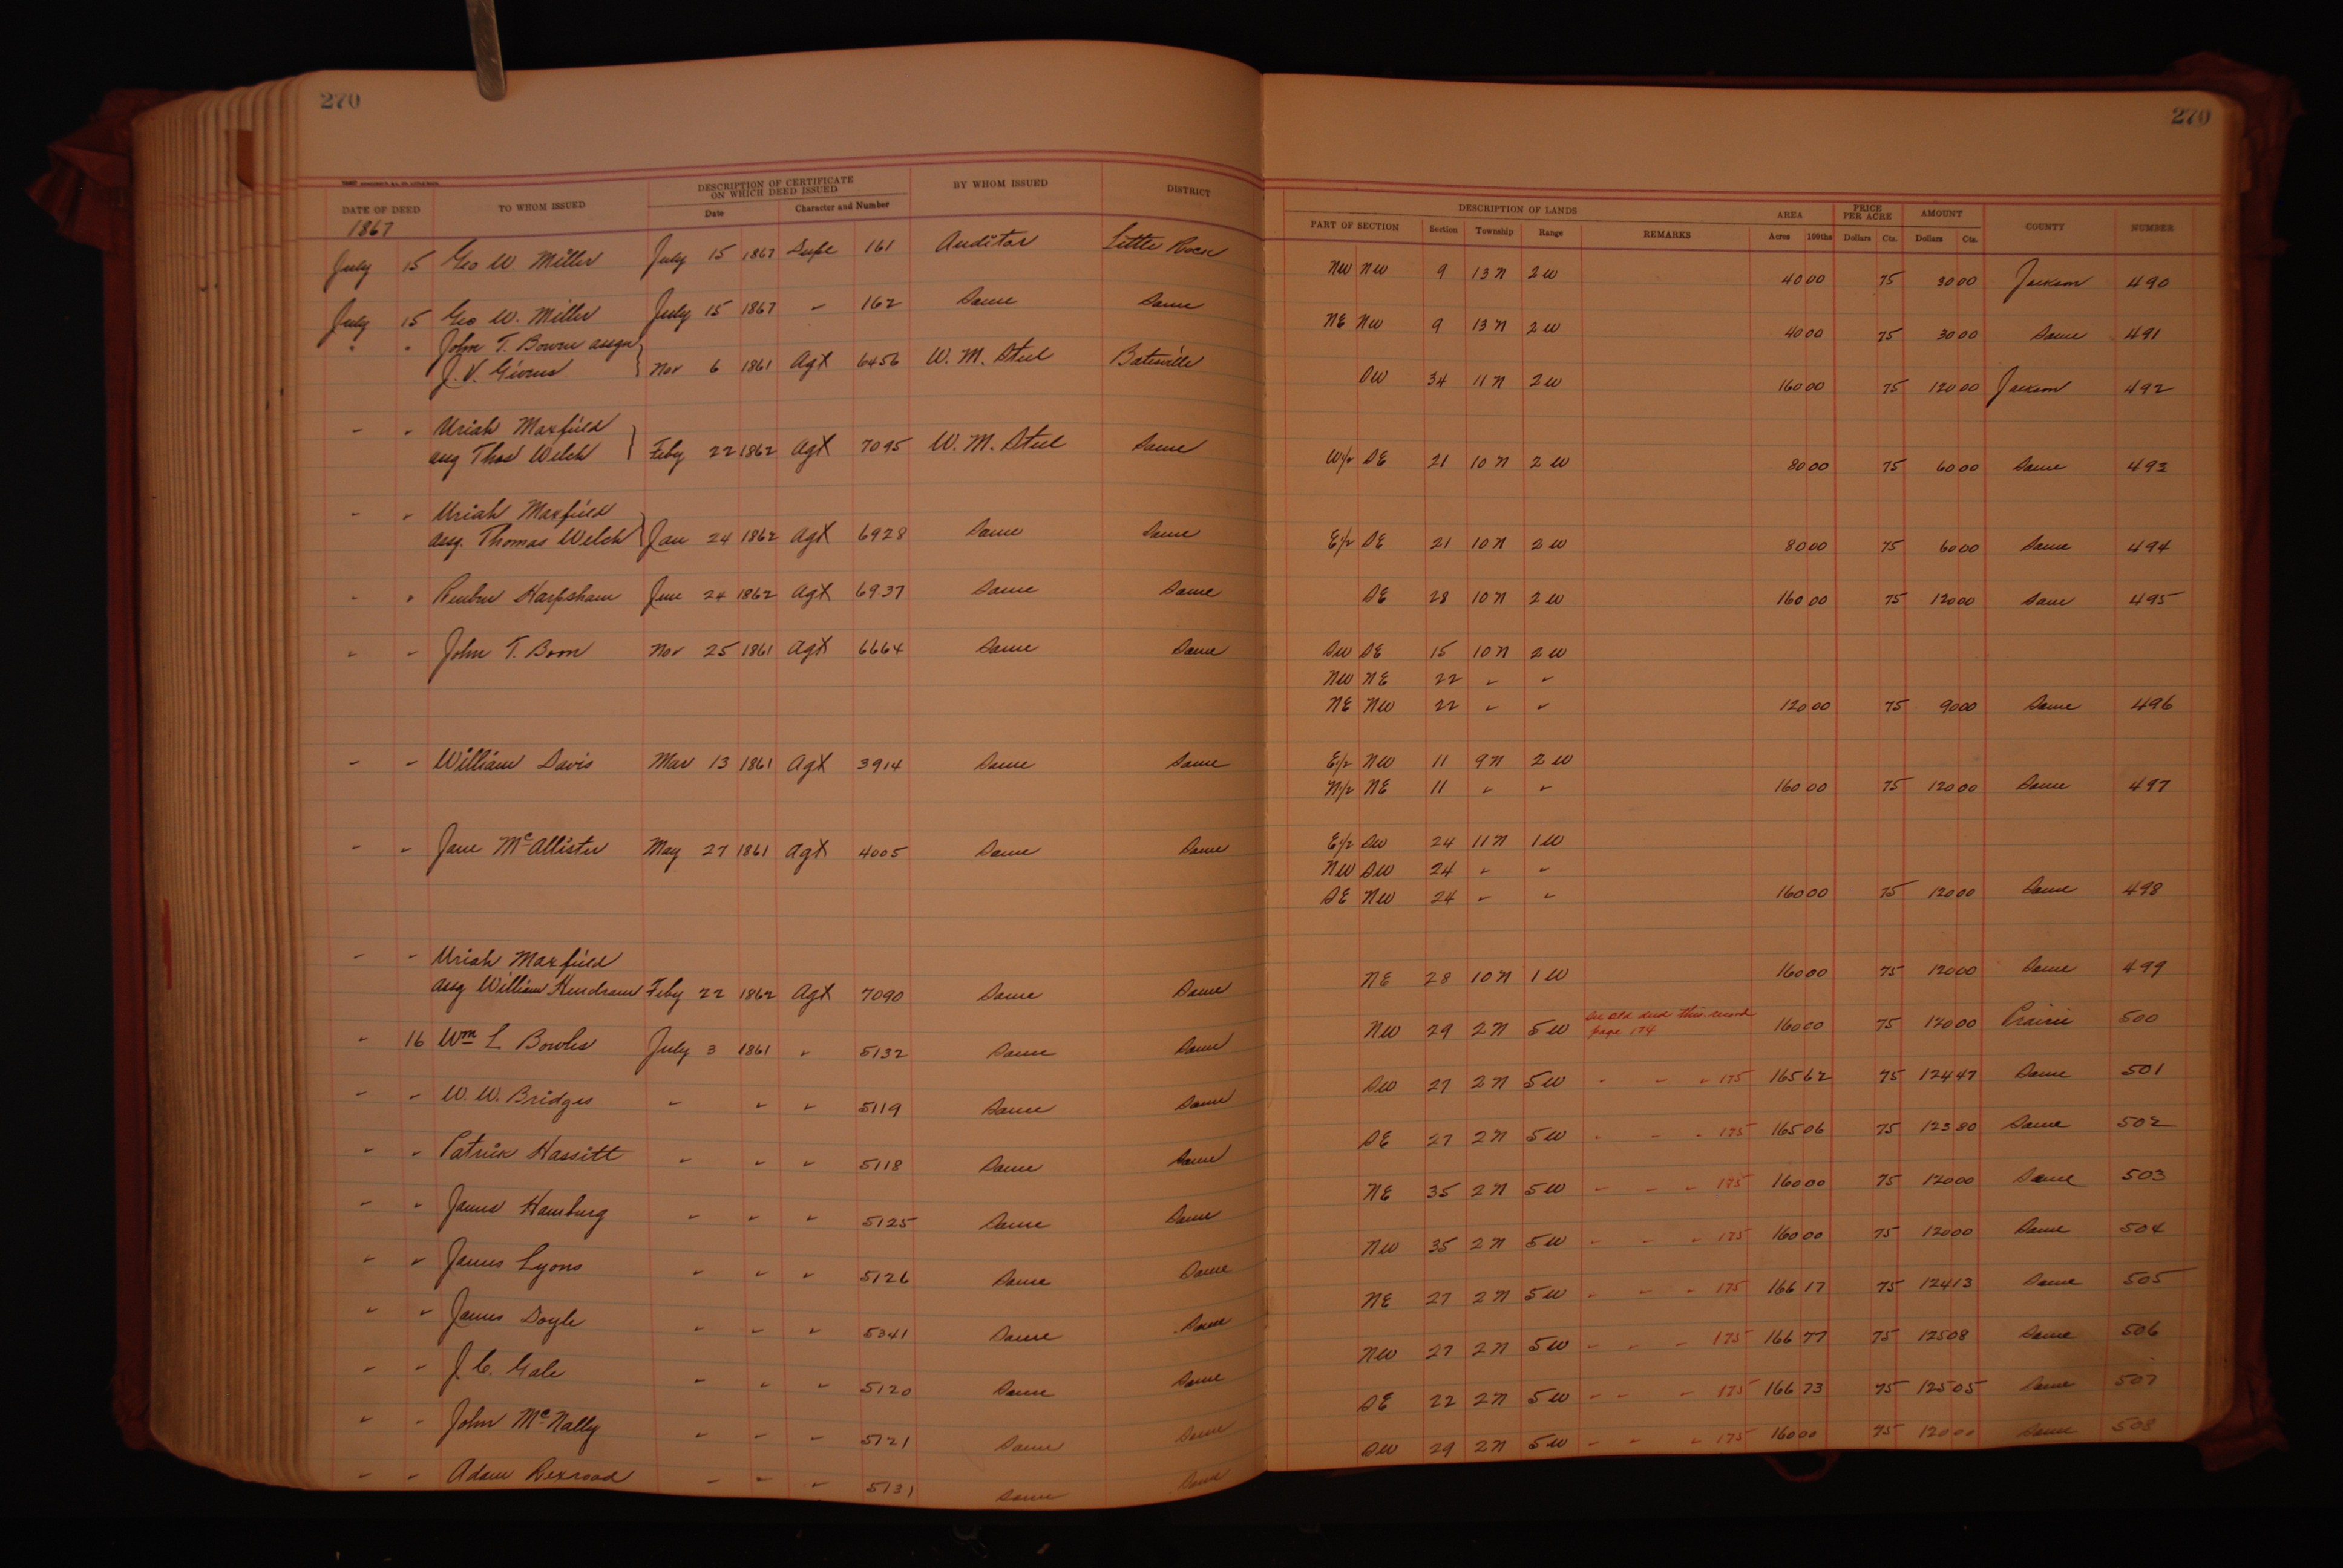 270
270
DATE OF DEED
TO WHOM ISSUED
DESCRIPTION OF CERTIFICATE
ON WHICH DEED ISSUED
Date
Character and Number
BY WHOM ISSUED
DISTRICT
DESCRIPTION OF LANDS
PART OF SECTION
Section
Township
Range
REMARKS
AREA
Acres
100ths
PRICE
PER ACRE
Dollars
Cts.
AMOUNT
Dollars
Cts.
COUNTY
NUMBER
1867
July 15 Geo W Miller July 15 1867 Supe 161 Auditor Little Rock NW NW 9 13 N 2 W 40 00 75 30 00 Jackson 490
July 15 Geo W. Miller July 15 1867 " 162 Same Same NE NW 9 13 N 2 W 40 00 75 30 00 Same 491
" " John T. Bowen assgn
J. V. Givens } Nov 6 1861 Agt 6456 W. M. Steel Batesville SW 34 11 N 2 W 160 00 75 120 00 Jackson 492
" " Uriah Maxfield
assg Thos Welch } Feby 22 1862 Agt 7095 W. M. Steel Same W/2 SE 21 10 N 2 W 80 00 75 60 00 Same 493
" " Uriah Maxfield
assg. Thomas Welch } Jan 24 1862 Agt 6928 Same Same E/2 SE 21 10 N 2 W 80 00 75 60 00 Same 494
" " Reuben Harpsham Jan 24 1862 Agt 6937 Same Same SE 28 10 N 2 W 160 00 75 120 00 Same 495
" " John T. Boon Nov 25 1861 Agt 6664 Same Same SW SE 15 10 N 2 W
NW NE 22 " "
NE NW 22 " " 120 00 75 90 00 Same 496
" " William Davis Mar 13 1861 Agt 3914 Same Same E/2 NW 11 9 N 2 W
N/2 NE 11 " " 160 00 75 120 00 Same 497
" " Jane McAllister May 27 1861 Agt 4005 Same Same E/2 SW 24 11 N 1 W
NW SW 24 " "
SE NW 24 " " 160 00 75 120 00 Same 498
" " Uriah Maxfield
assg William Hendrson Feby 22 1862 Agt 7090 Same Same NE 28 10 N 1 W 160 00 75 120 00 Same 499
" 16 Wm L Bowles July 3 1861 " 5132 Same Same NW 29 2 N 5 W See old deed this record page 174 160 00 75 120 00 Prairie 500
" " W. W. Bridges " " " 5119 Same Same SW 27 2 N 5 W " " " 175 165 62 75 124 47 Same 501
" " Patrick Hassitt " " " 5118 Same Same SE 27 2 N 5 W " " " 175 165 06 75 123 80 Same 502
" " James Hamburg " " " 5125 Same Same NE 35 2 N 5 W " " " 175 160 00 75 120 00 Same 503
" " James Lyons " " " 5126 Same Same NW 35 2 N 5 W " " " 175 160 00 75 120 00 Same 504
" " James Doyle " " " 5041 Same Same NE 27 2 N 5 W " " " 175 166 17 75 124 13 Same 505
" " J. C. Gale " " " 5120 Same Same NW 27 2 N 5 W " " " 175 166 77 75 125 08 Same 506
" " John McNally " " " 5121 Same Same SE 22 2 N 5 W " " " 175 166 73 75 125 05 Same 507
" " Adam Rexroad " " " 5131 Same Same SW 29 2 N 5 W " " " 175 160 00 75 120 00 Same 508